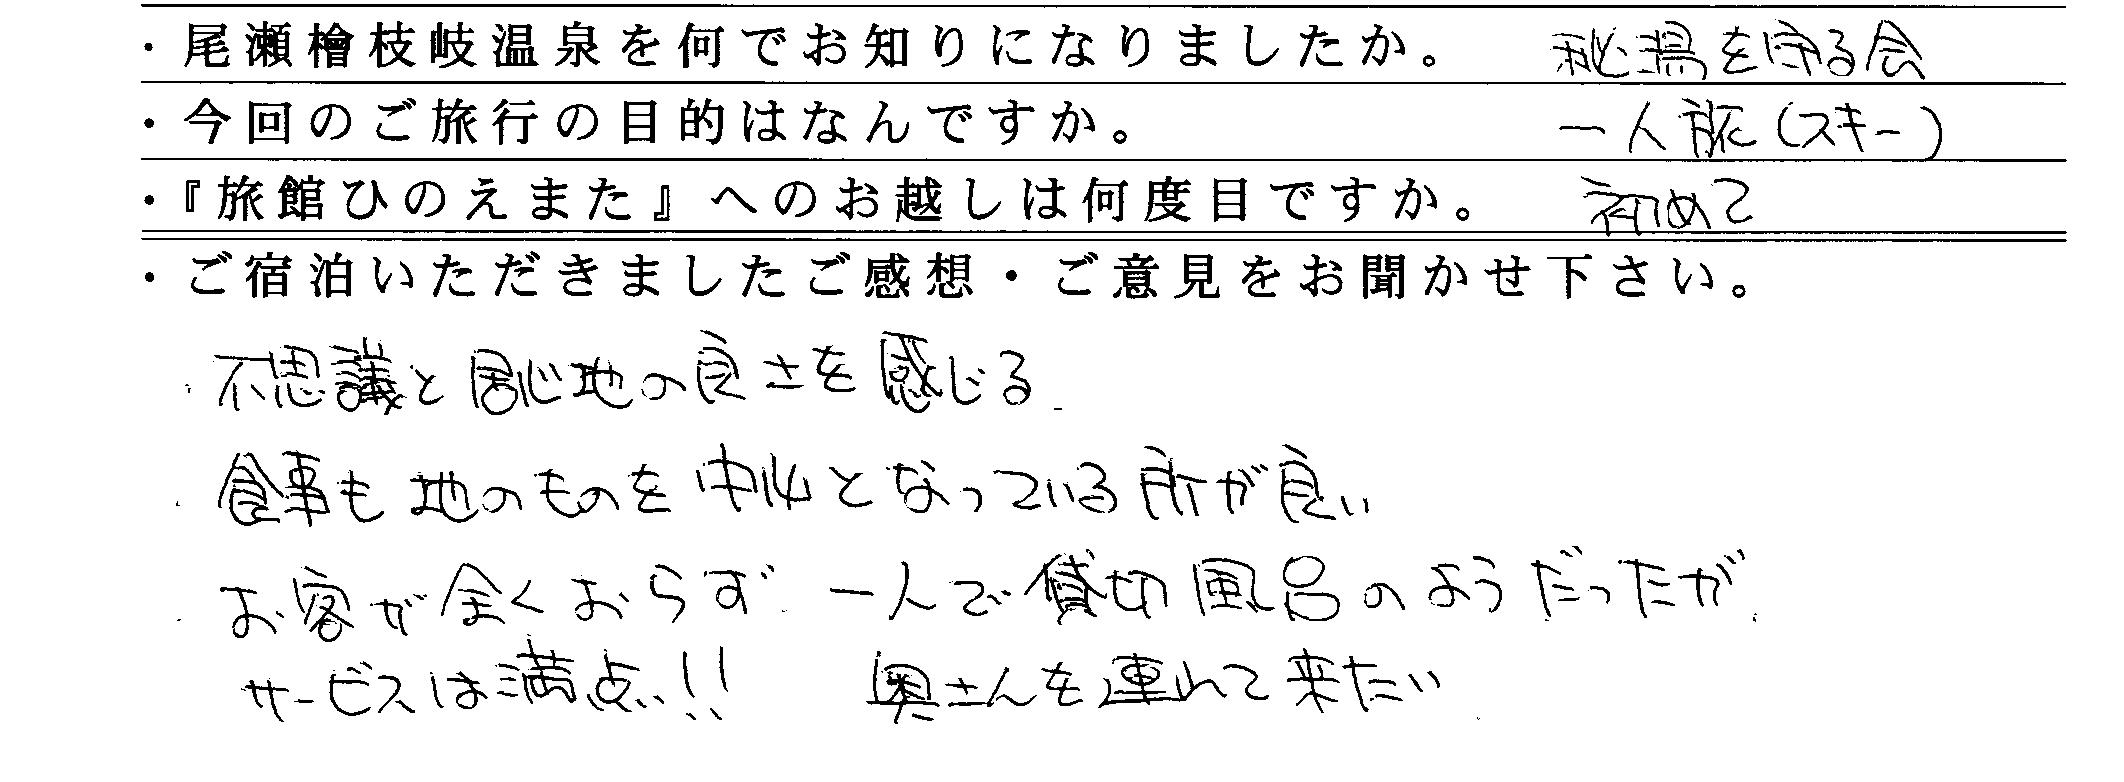 ・尾瀬檜枝岐温泉を何でお知りになりましたか。 秘湯を守る会
・今回のご旅行の目的はなんですか。 一人旅(スキー)
・『旅館ひのえまた』へのお越しは何度目ですか。 初めて
・ご宿泊いただきましたご感想・ご意見をお聞かせ下さい。
・不思議と居心地の良さを感じる
・食事も地のものを中心となっている所が良い
・お客が全くおらず、一人で貸切風呂のようだったが、
サービスは満点!! 奥さんを連れて来たい